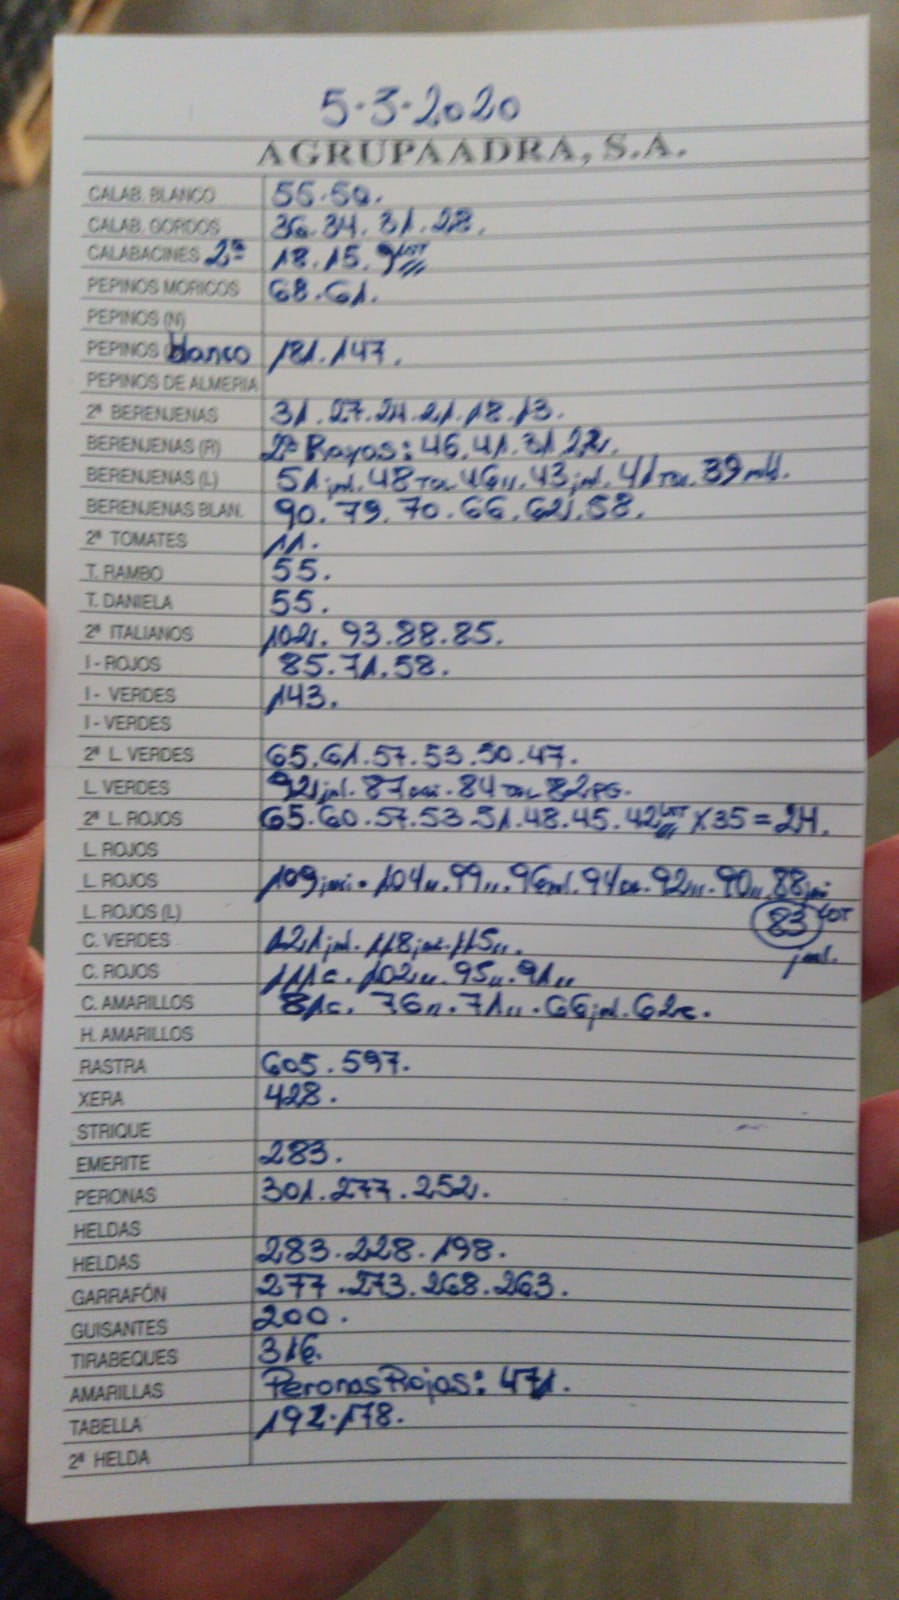 5-3-2020
AGRUPAADRA, S.A.
CALAB. BLANCO 55.50.
CALAB. GORDOS 36.34.31.28.
CALABACINES 2ª 18.15.9 LOT
PEPINOS MORICOS 68.61.
PEPINOS (N)
PEPINOS blanco 181.147.
PEPINOS DE ALMERIA
2ª BERENJENAS 31.27.24.21.18.13.
BERENJENAS (R) 2ª Rayas: 46.41.31.22.
BERENJENAS (L) 51 jml. 48 46 ,, 43 jml. 41 39
BERENJENAS BLAN. 90.79.70.66.62.58.
2ª TOMATES 11.
T. RAMBO 55.
T. DANIELA 55.
2ª ITALIANOS 102.93.88.85.
I - ROJOS 85.71.58.
I - VERDES 143.
I - VERDES
2ª L. VERDES 65.61.57.53.50.47.
L. VERDES 92 jml. 87 84 82
2ª L. ROJOS 65.60.57.53.51.48.45.42 LOT X 35 = 24.
L. ROJOS
L. ROJOS 109 104 ,, 99 ,, 96 94 92 ,, 90 ,, 88
L. ROJOS (L) 83 LOT
C. VERDES 121 jml. 118 115 ,, jml.
C. ROJOS 111c. 102 ,, 95 ,, 91 ,,
C. AMARILLOS 81c. 76 ,, 71 ,, 66 jml. 62c.
H. AMARILLOS
RASTRA 605.597.
XERA 428.
STRIQUE
EMERITE 283.
PERONAS 301.277.252.
HELDAS
HELDAS 283.228.198.
GARRAFÓN 277.273.268.263.
GUISANTES 200.
TIRABEQUES 316.
AMARILLAS Peronas Rojas: 471.
TABELLA 192.178.
2ª HELDA